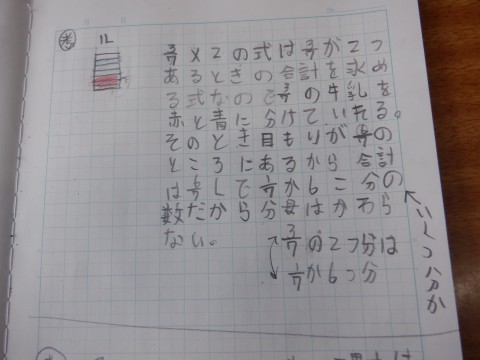 考
1L
3/7×2の式は3/7が2つ
あるときの合計を求め
る式なので3/7の牛乳を
赤と青に分けていれる。
そのとき目もりが6/7の
ところにあるから合計
は6/7Lで1/7が6こ分の
数だから分母はかわら
ない。
3/7の2つ分は
1/7が6つ分
いくつ分か